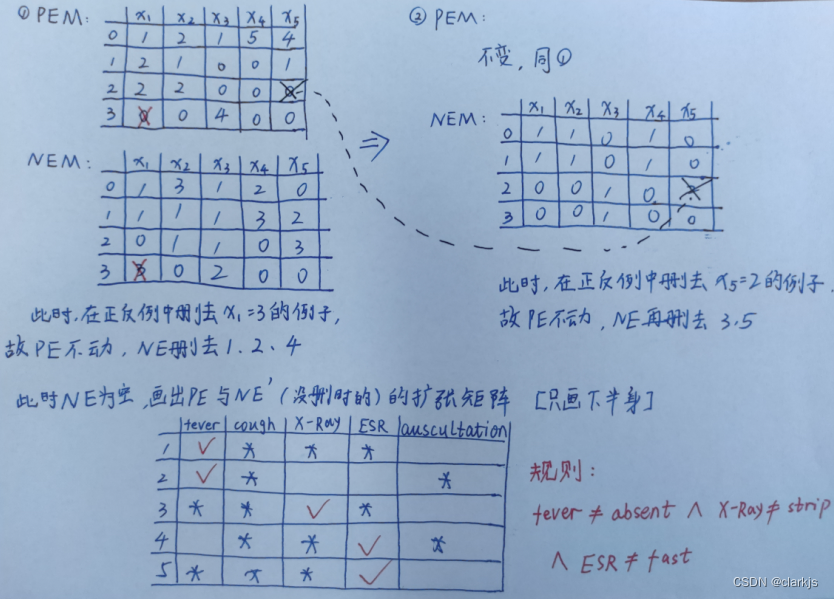 ① PEM:
x₁ x₂ x₃ x₄ x₅
0 1 2 1 5 4
1 2 1 0 0 1
2 2 2 0 0 0
3 0 0 4 0 0
NEM:
x₁ x₂ x₃ x₄ x₅
0 1 3 1 2 0
1 1 1 1 3 2
2 0 1 1 0 3
3 3 0 2 0 0
此时,在正反例中删去 x₁=3的例子,
故PE不动,NE删去 1、2、4
⇒
② PEM:
不变,同①
NEM:
x₁ x₂ x₃ x₄ x₅
0 1 1 0 1 0
1 1 1 0 1 0
2 0 0 1 0
3 0 0 1 0 0
此时,在正反例中删去 x₅=2的例子.
故PE不动,NE再删去 3.5
此时NE为空,画出PE与NE'(没删时的)的扩张矩阵 [只画下半身]
fever cough X-Ray ESR auscultation
1 ✓ * * *
2 ✓ * *
3 * * ✓ *
4 * * ✓ *
5 * * * ✓
规则:
fever ≠ absent ∧ X-Ray ≠ strip
∧ ESR ≠ fast
CSDN @clarkjs